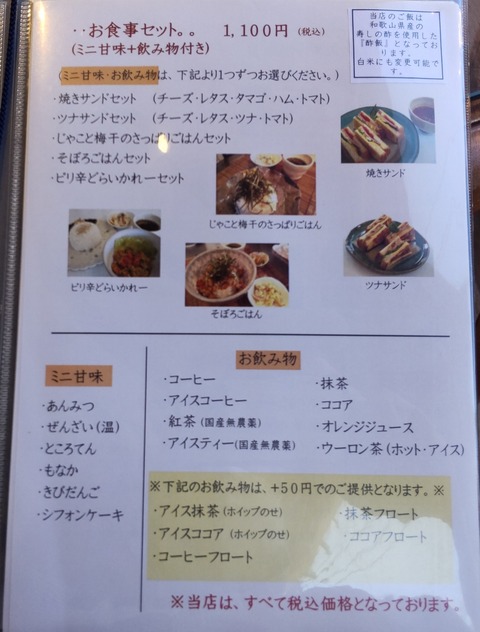 ・・お食事セット。。 1,100円 (税込)
(ミニ甘味+飲み物付き)
(ミニ甘味・お飲み物は、下記より1つずつお選びください。)
当店のご飯は
和歌山県産の
寿しの酢を使用した
『酢飯』となっており
ます。
白米にも変更可能で
す。
・焼きサンドセット (チーズ・レタス・タマゴ・ハム・トマト)
・ツナサンドセット (チーズ・レタス・ツナ・トマト)
・じゃこと梅干のさっぱりごはんセット
・そぼろごはんセット
・ピリ辛どらいかれーセット
焼きサンド
じゃこと梅干のさっぱりごはん
ピリ辛どらいかれー
ツナサンド
そぼろごはん
ミニ甘味
・あんみつ
・ぜんざい(温)
・ところてん
・もなか
・きびだんご
・シフォンケーキ
お飲み物
・コーヒー
・アイスコーヒー
・紅茶 (国産無農薬)
・アイスティー(国産無農薬)
・抹茶
・ココア
・オレンジジュース
・ウーロン茶 (ホット・アイス)
※下記のお飲み物は、+50円でのご提供となります。※
・アイス抹茶 (ホイップのせ)
・アイスココア (ホイップのせ)
・コーヒーフロート
・抹茶フロート
・ココアフロート
※当店は、すべて税込価格となっております。